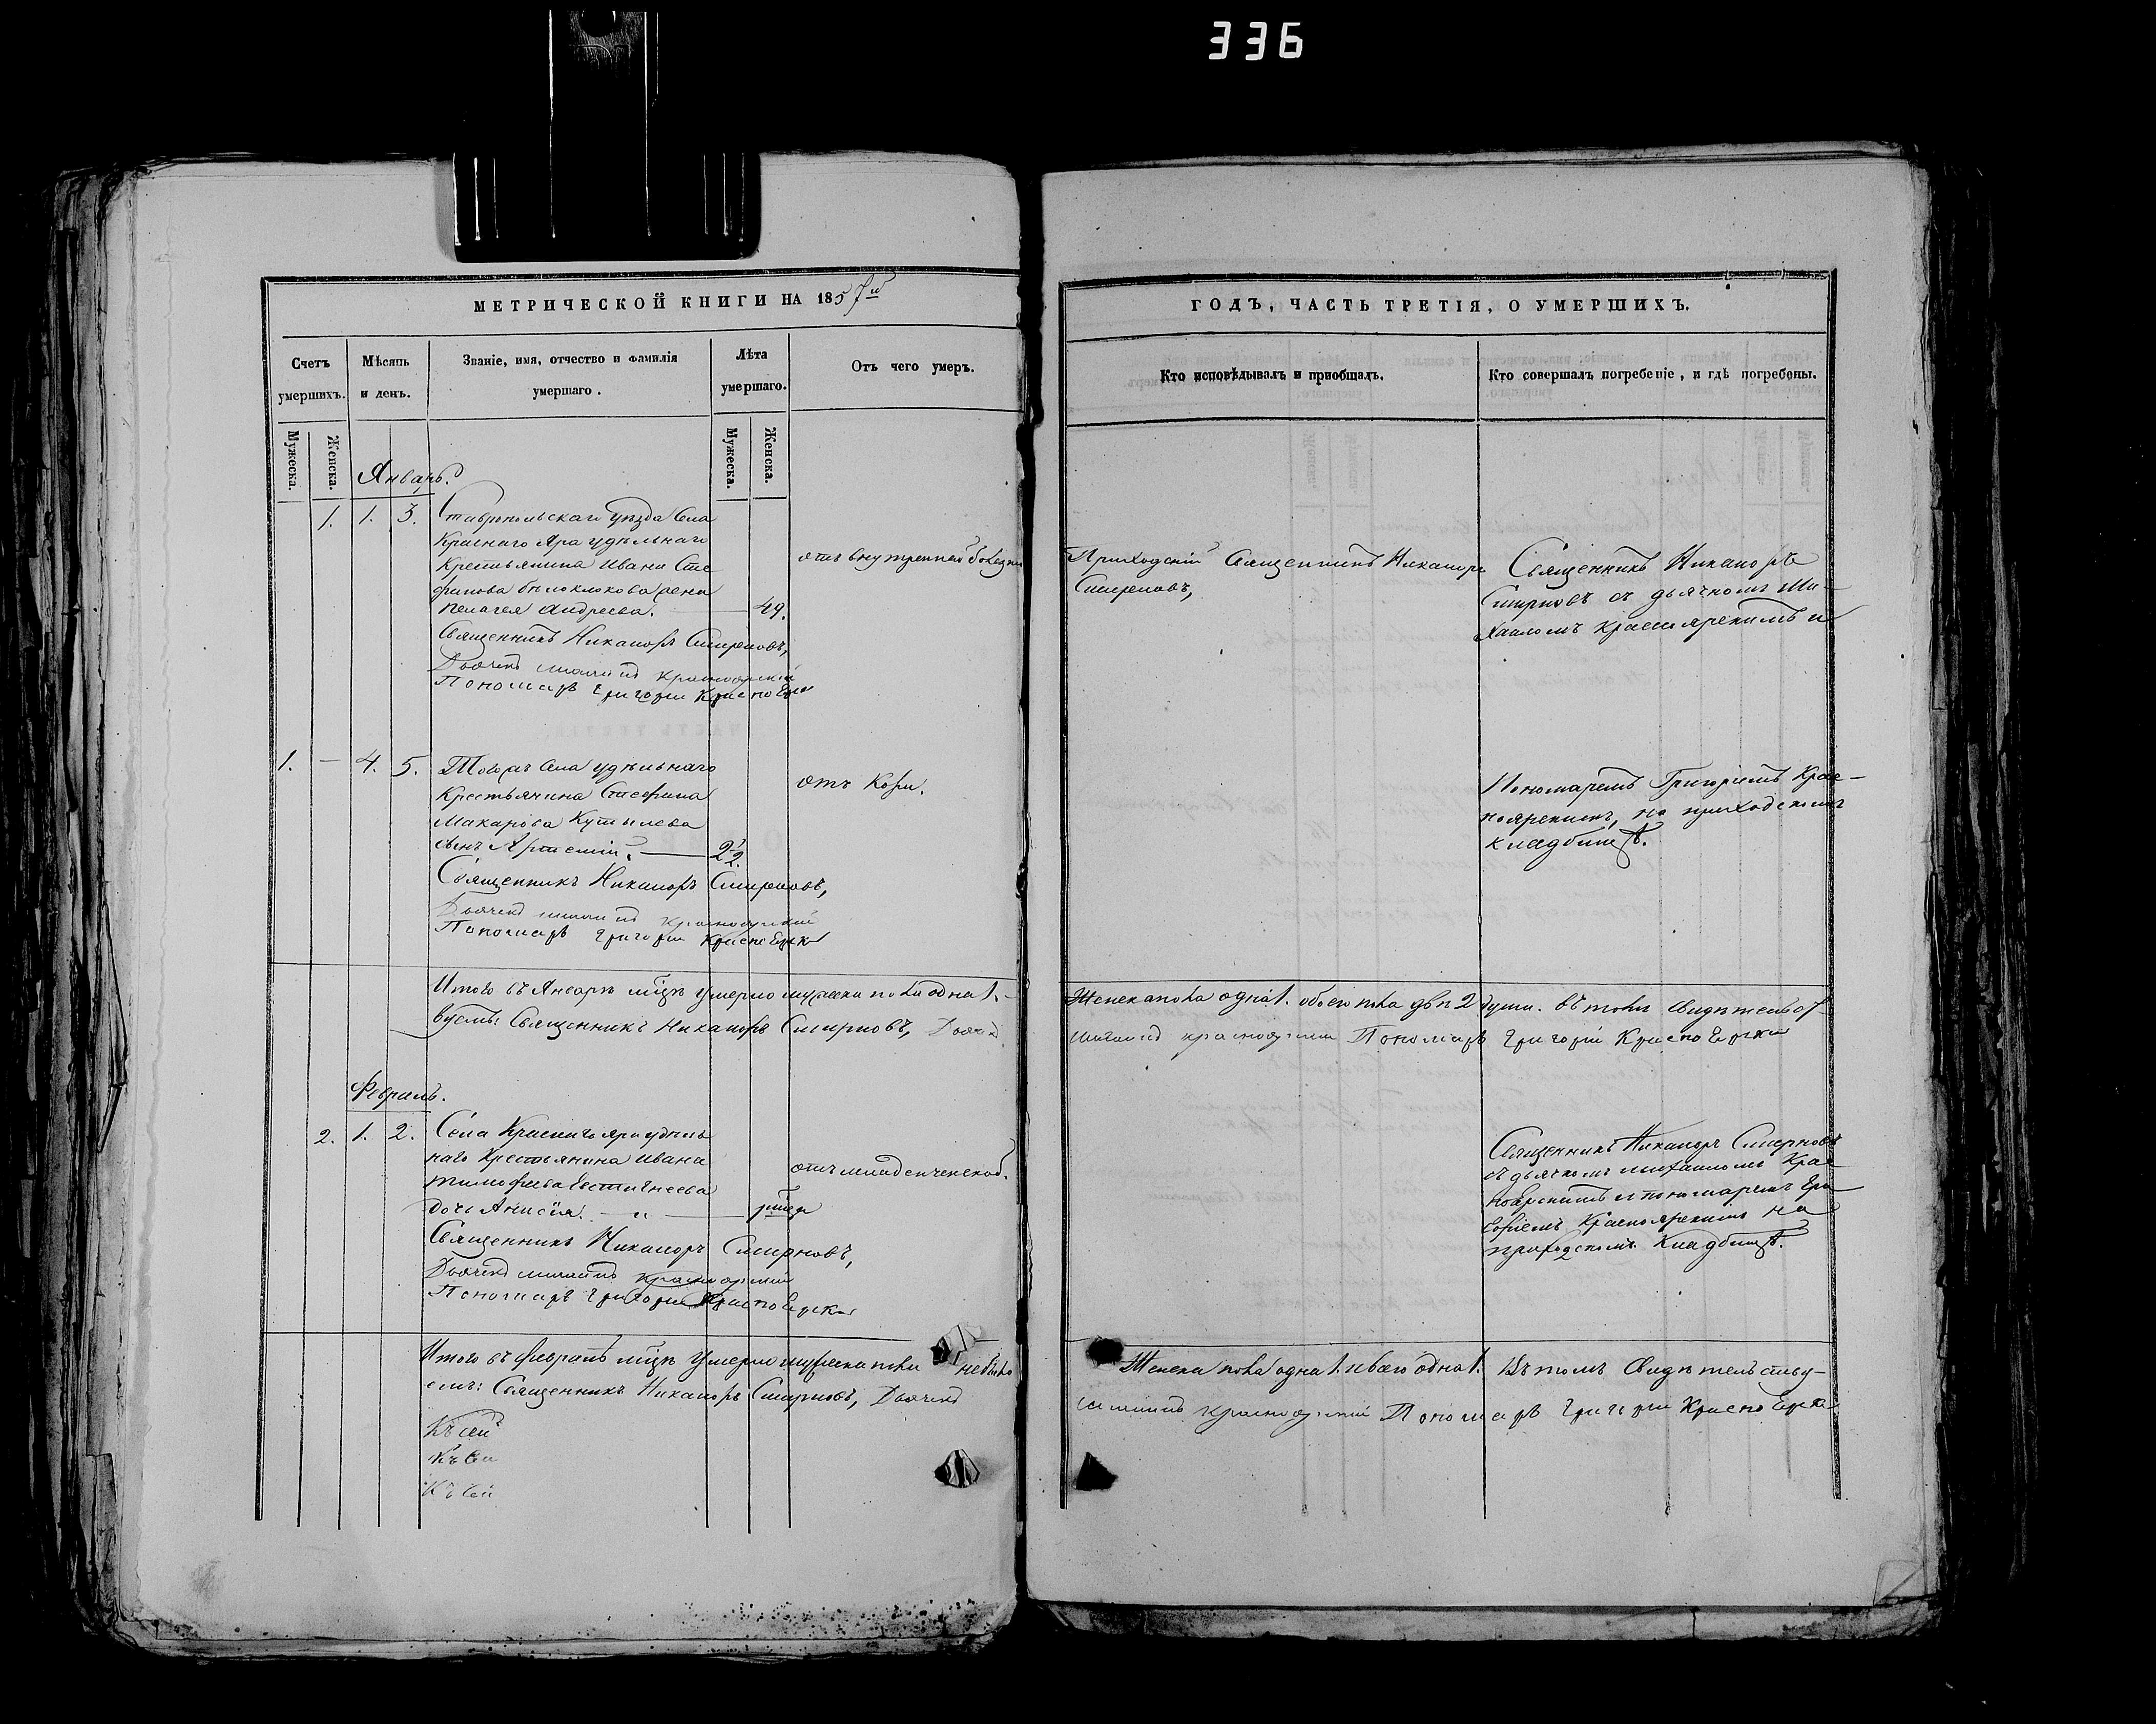 336
МЕТРИЧЕСКОЙ КНИГИ НА 1857й
Счетъ умершихъ.
Мѣсяцъ и день.
Званіе, имя, отчество и фамилія умершаго.
Лѣта умершаго.
Отъ чего умеръ.
Мужеска.
Женска.
Мужеска.
Женска.
Январь.
1. 1. 3. Ставропольскаго уѣзда Села
Краснаго Яра удѣльнаго
Крестьянина Ивана Сте
фанова Бѣлоклокова жена
Пелагея Андреева. 49.
отъ внутренней болезни
Священникъ Никаноръ Смирновъ,
Дьячекъ Михаилъ Красноярскій
Пономарь Григорій Красноярскій
1. — 4. 5. Тогожъ Села удѣльнаго
Крестьянина Стефана
Макарова Кутылева
сынъ Артемій. 2½.
отъ Кори.
Священникъ Никаноръ Смирновъ,
Дьячекъ Михаилъ Красноярскій
Пономарь Григорій Красноярскій
Итого въ Январѣ мцѣ умерло мужеска пола одна 1.
Священникъ Никаноръ Смирновъ, Дьячекъ
Февраль.
2. 1. 2. Села Краснаго яра удѣль
наго Крестьянина Ивана
Тимофеева
дочь Анисія.
отъ младенческой.
Священникъ Никаноръ Смирновъ,
Дьячекъ Михаилъ Красноярскій
Пономарь Григорій Красноярскій
Итого въ Февралѣ мцѣ умерло мужеска пола небыло
емъ: Священникъ Никаноръ Смирновъ, Дьячекъ
Къ сей
Къ сей
Къ сей
ГОДЪ, ЧАСТЬ ТРЕТІЯ, О УМЕРШИХЪ.
Кто исповѣдывалъ и приобщалъ.
Кто совершалъ погребеніе, и гдѣ погребены.
Приходскій Священникъ Никаноръ
Смирновъ,
Священникъ Никаноръ
Смирновъ съ дьячкомъ Ми-
хаиломъ Красноярскимъ и
Пономаремъ Григоріемъ Крас-
ноярскимъ, на приходскомъ
кладбищѣ.
Женска пола одна 1. обоего пола двѣ 2 души. въ томъ свидѣтельст
Михаилъ Красноярскій Пономарь Григорій Красноярскій
Священникъ Никаноръ Смирновъ
съ дьячкомъ Михаиломъ Крас
ноярскимъ и пономаремъ Гри
горіемъ Красноярскимъ на
приходскомъ Кладбищѣ.
Женска пола одна 1. и всего одна 1. Въ томъ Свидѣтельству-
Михаилъ Красноярскій Пономарь Григорій Красноярскій